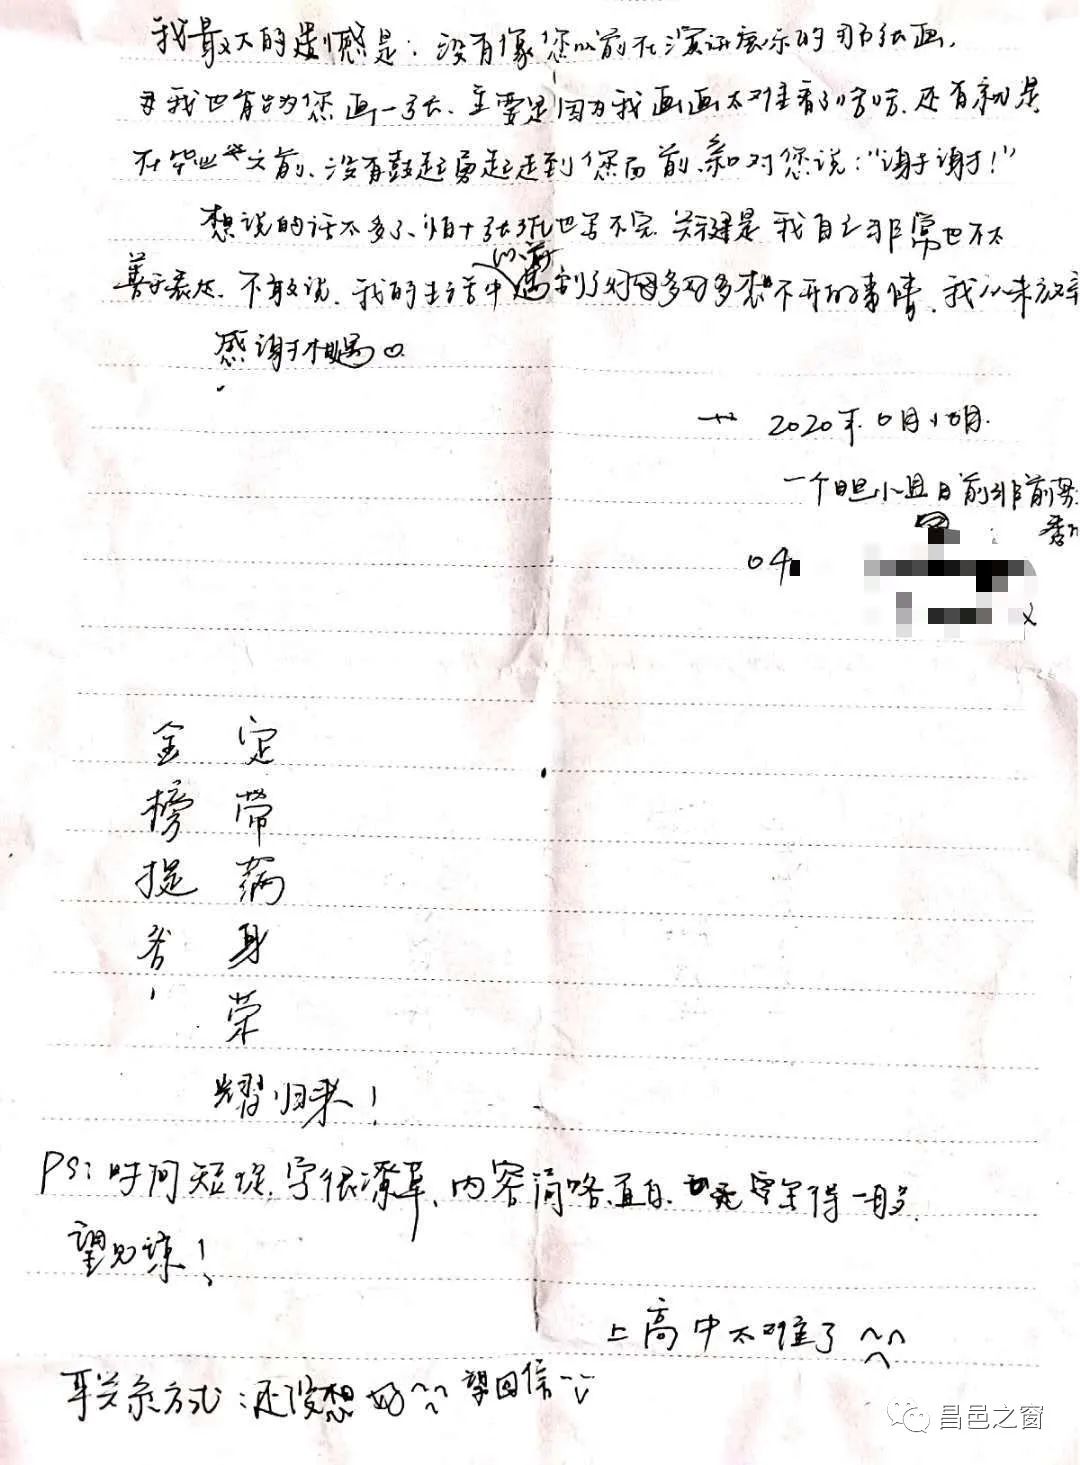 我最大的遗憾是：没有像您以前在演讲展示的那张画，
我也有给您画一张、主要是因为我画画太难看了哈哈、还有就是
在毕业 之前、没有鼓起勇起走到您面前、亲口对您说：“谢谢！”
想说的话太多了、怕十张纸也写不完 关键是我自己非常也不太
善于表达、不敢说、我的生活中以前遇到了好多好多想不开的事情、我从未放弃
感谢相遇。
2020年 月 日.
一个胆小且目前非
04
金榜提名，
定带满身荣耀归来！
PS：时间短促，字很潦草，内容简略、直白、
望见谅！
上高中太难了^^
联系方式：还没想好^^ 望回信
昌邑之窗